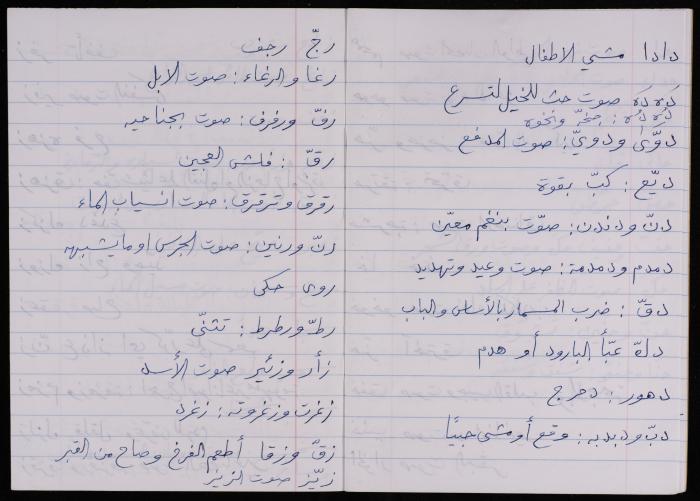 دادا مشي الاطفال
دَه دَه صوت حث للخيل لتسرع
دُه دُه : ونخوه
دوّى ودويّ: صوت المدفع
ديّع : كبّ بقوة
دنّ ودندن: صوّت بنغم معيّن
دمدم ودمدمة: صوت وعيد وتهديد
دقّ : ضرب المسمار بالأساس والباب
دكّ عبّأ البارود أو هدم
دهور : دحرج
دبّ ودبدبه: وقع أو مشى حبيًا
رجّ رجف
رغا والرغاء: صوت الابل
رفّ ورفرف: صوت بجناحيه
رقّ : فلش العجين
رقرق وترقرق: صوت انسياب الماء
رنّ ورنين: صوت الجرس او ما يشبهه
روى حكى
رطّ ورطرط: تثنّى
زأر وزئير صوت الأسد
زغرت وزغروته: زغرد
زقّ وزقا أطعم الفرخ وصاح من القبر
زيّز صوت الزيز